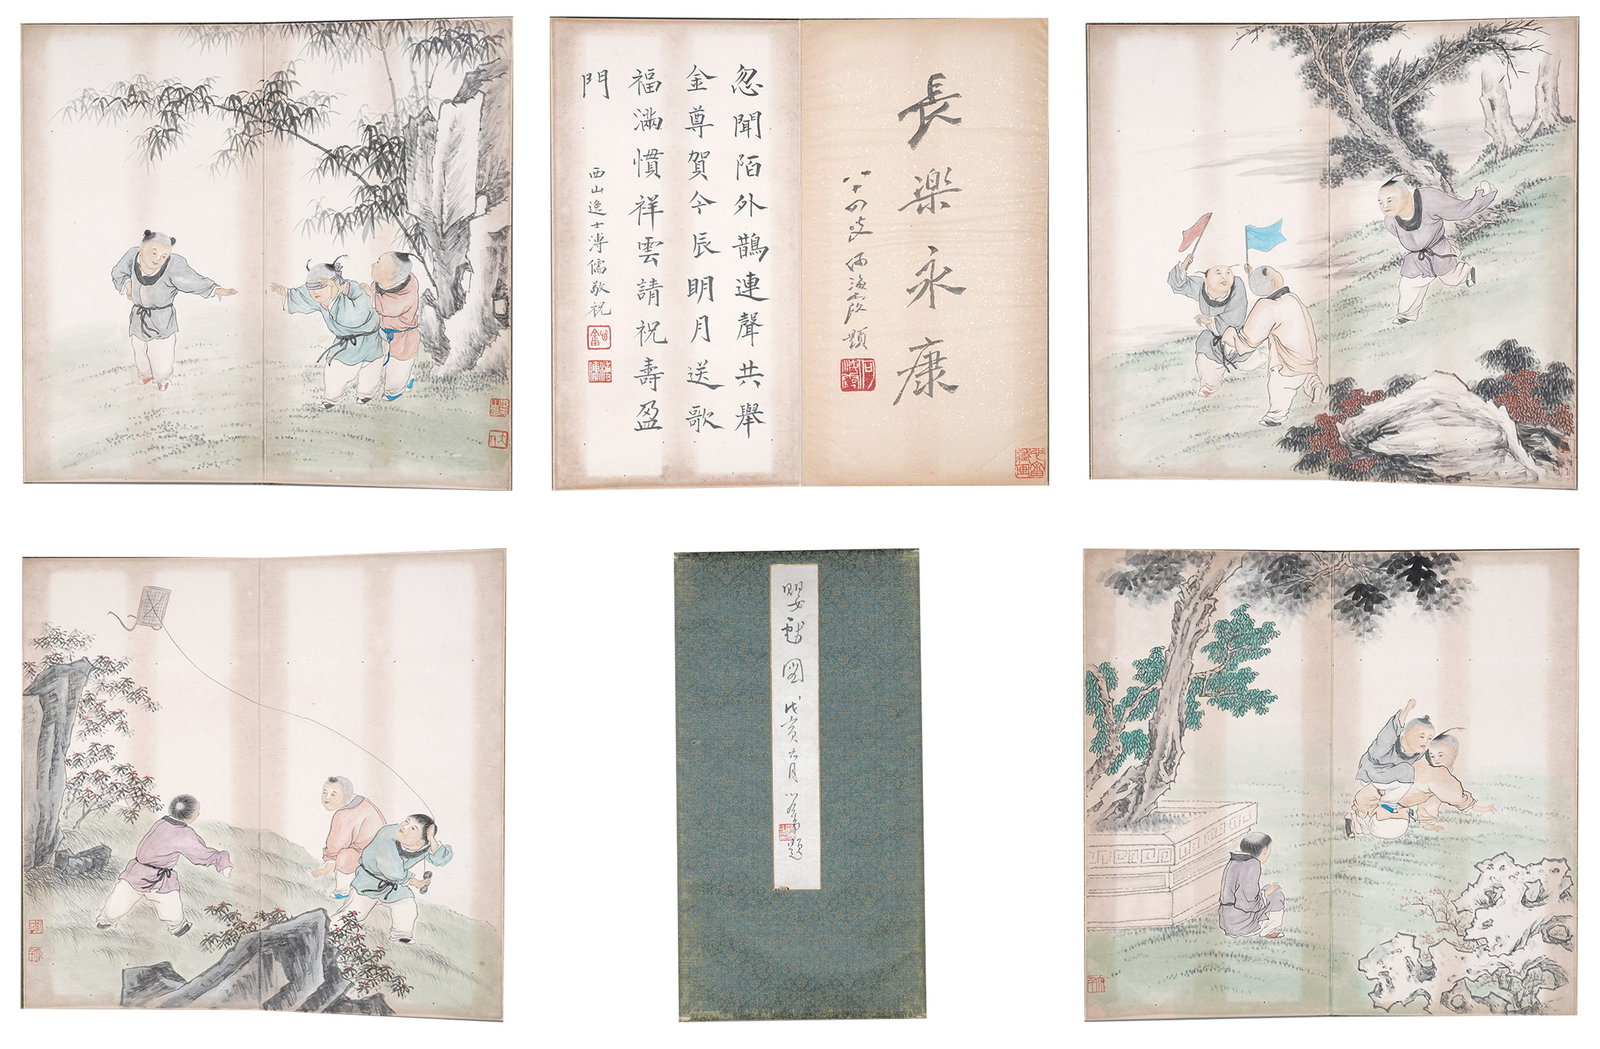 長樂永康
八十四叟何海霞題
忽聞陌外鵲連聲共舉
金尊賀今辰明月送歌
福滿慣祥雲請祝壽盈
門
西山逸士溥儒敬祝
嬰戲圖
戊寅
題